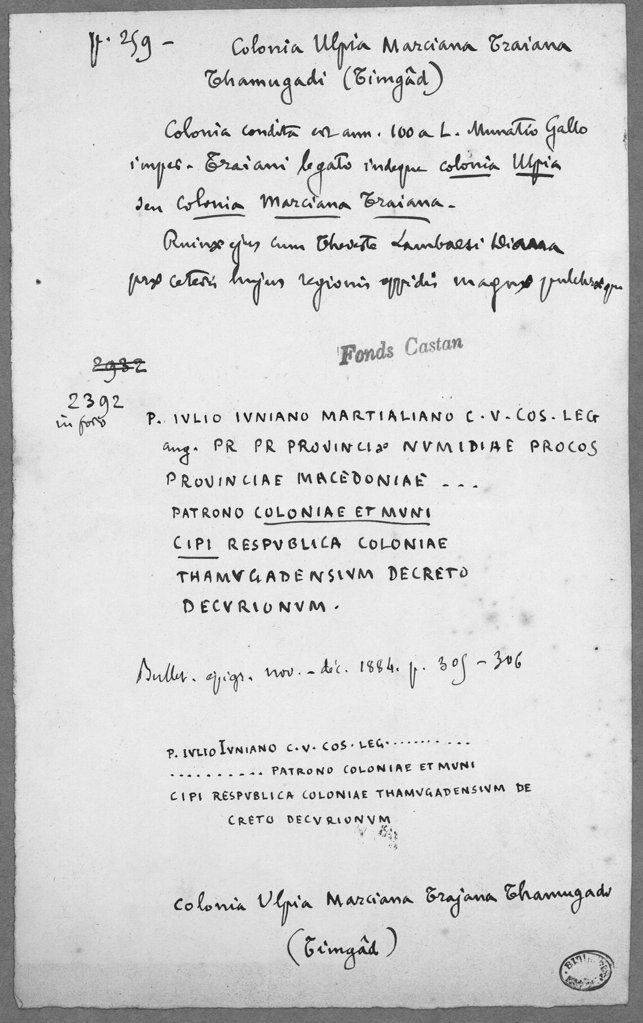 p. 259 - Colonia Ulpia Marciana Traiana
Thamugadi (Timgâd)
Colonia condita est ann. 100 a L. Munatio Gallo
imper. Traiani legato indeque colonia Ulpia
seu Colonia Marciana Traiana.
Ruinæ ejus cum Theveste Lambaesi Diana
præ ceteris hujus regionis oppidis magnæ pulchræque
Fonds Castan
2932
2392
in foro
P. IVLIO IVNIANO MARTIALIANO C. V. COS. LEG
aug. PR PR PROVINCIæ NVMIDIAE PROCOS
PROVINCIAE MACEDONIAE ...
PATRONO COLONIAE ET MVNI
CIPI RESPVBLICA COLONIAE
THAMVGADENSIVM DECRETO
DECVRIONVM.
Bullet. épigr. nov. - déc. 1884. p. 305 - 306
P. IVLIO IVNIANO C. V. COS. LEG. ..........
.......... PATRONO COLONIAE ET MVNI
CIPI RESPVBLICA COLONIAE THAMVGADENSIVM DE
CRETO DECVRIONVM
Colonia Ulpia Marciana Trajana Thamugadi
(Timgâd)